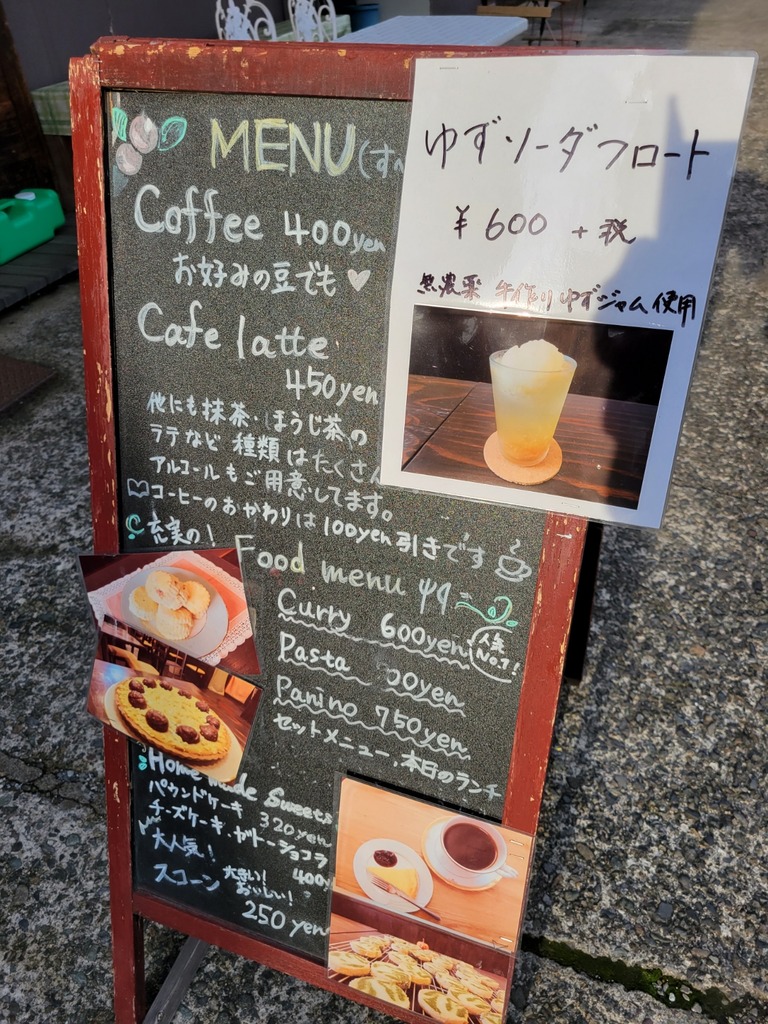 MENU (す
ゆずソーダフロート
¥600 +税
無農薬 手作りゆずジャム使用
Coffee 400yen
お好みの豆でも♡
Cafe latte
450yen
他にも抹茶・ほうじ茶の
ラテなど種類はたくさん
アルコールもご用意してます。
コーヒーのおかわりは100yen引きです
充実の!
Food menu
Curry 600yen
人気No.1!
Pasta 00yen
Panino 750yen
セットメニュー、本日のランチ
Home made Sweets
パウンドケーキ 320yen
チーズケーキ・ガトーショコラ
400y
大人気!
スコーン 大きい!おいしい!
250yen